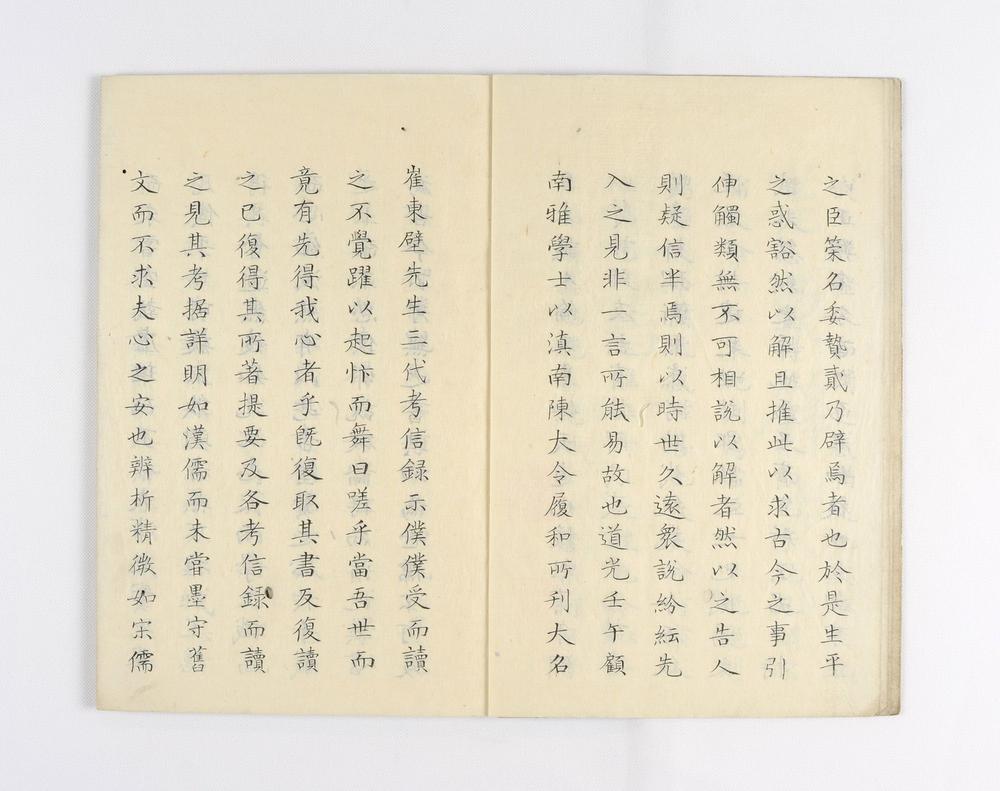 之臣策名委贄貳乃辟焉者也於是生平
之惑豁然以解且推此以求古今之事引
伸觸類無不可相說以解者然以之告人
則疑信半焉則以時世久遠衆說紛紜先
入之見非一言所能易故也道光壬午顧
南雅學士以滇南陳大令履和所刊大名
崔東壁先生三代考信録示僕僕受而讀
之不覺躍以起忭而舞曰嗟乎當吾世而
竟有先得我心者乎旣復取其書反復讀
之已復得其所著提要及各考信録而讀
之見其考据詳明如漢儒而未嘗墨守舊
文而不求夫心之安也辨析精微如宋儒